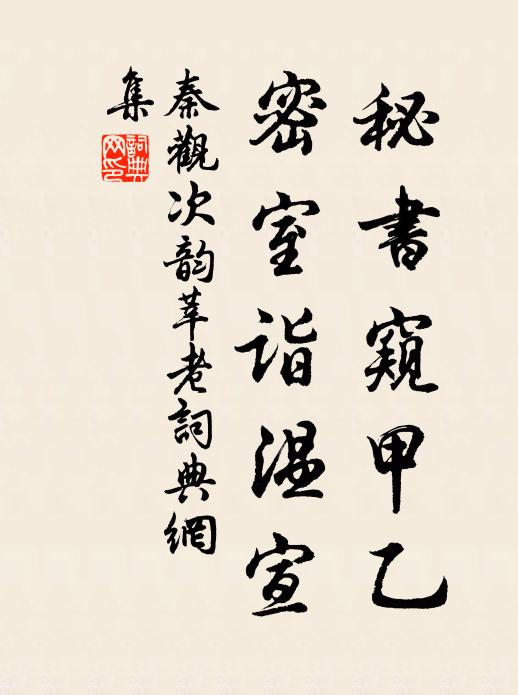 秘書窺甲乙
密室詣温宣
秦觀次韵莘老詞典網
集
詞典網印